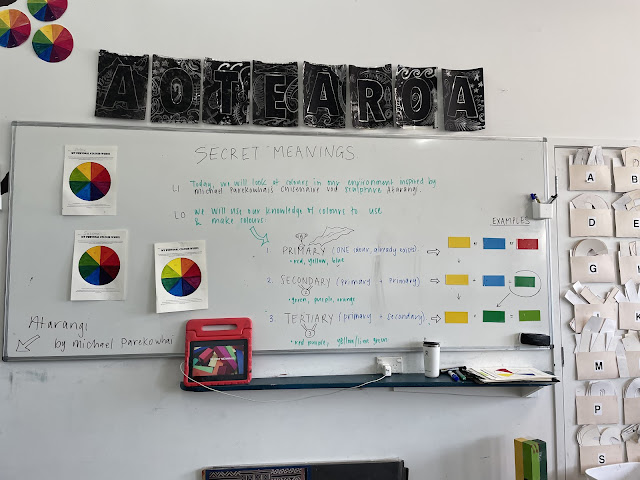 AOTEAROA
SECRET MEANINGS
LI Today, we will look at colours in our environment inspired by
Michael Parekowhais Chisenaire rod sculpture Atarangi.
LO We will use our knowledge of colours to use
& make colours
EXAMPLES
1. PRIMARY (ONE colour, already exists)
• red, yellow, blue
2. SECONDARY (Primary + Primary)
2
• green, purple, orange
3. TERTIARY (primary + secondary)
3
• red purple, yellow/lime green
Atarangi
by Michael Parekowhai
A
B
D
E
G
K
M
P
S